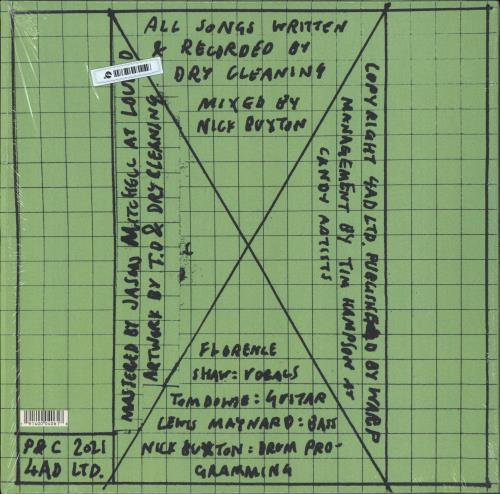 ALL SONGS WRITTEN
& RECORDED BY
DRY CLEANING
MIXED BY
NICK BUXTON
MASTERED BY JASON MITCHELL AT LOUD
ARTWORK BY T.D & DRY CLEANING
COPYRIGHT 4AD LTD. PUBLISHED BY WARP
MANAGEMENT BY TIM HAMPSON AT
CANDY ARTISTS
FLORENCE
SHAW: VOCALS
TOM DOWSE: GUITAR
LEWIS MAYNARD: BASS
NICK BUXTON: DRUM PRO-
GRAMMING
P&C 2021
4AD LTD.